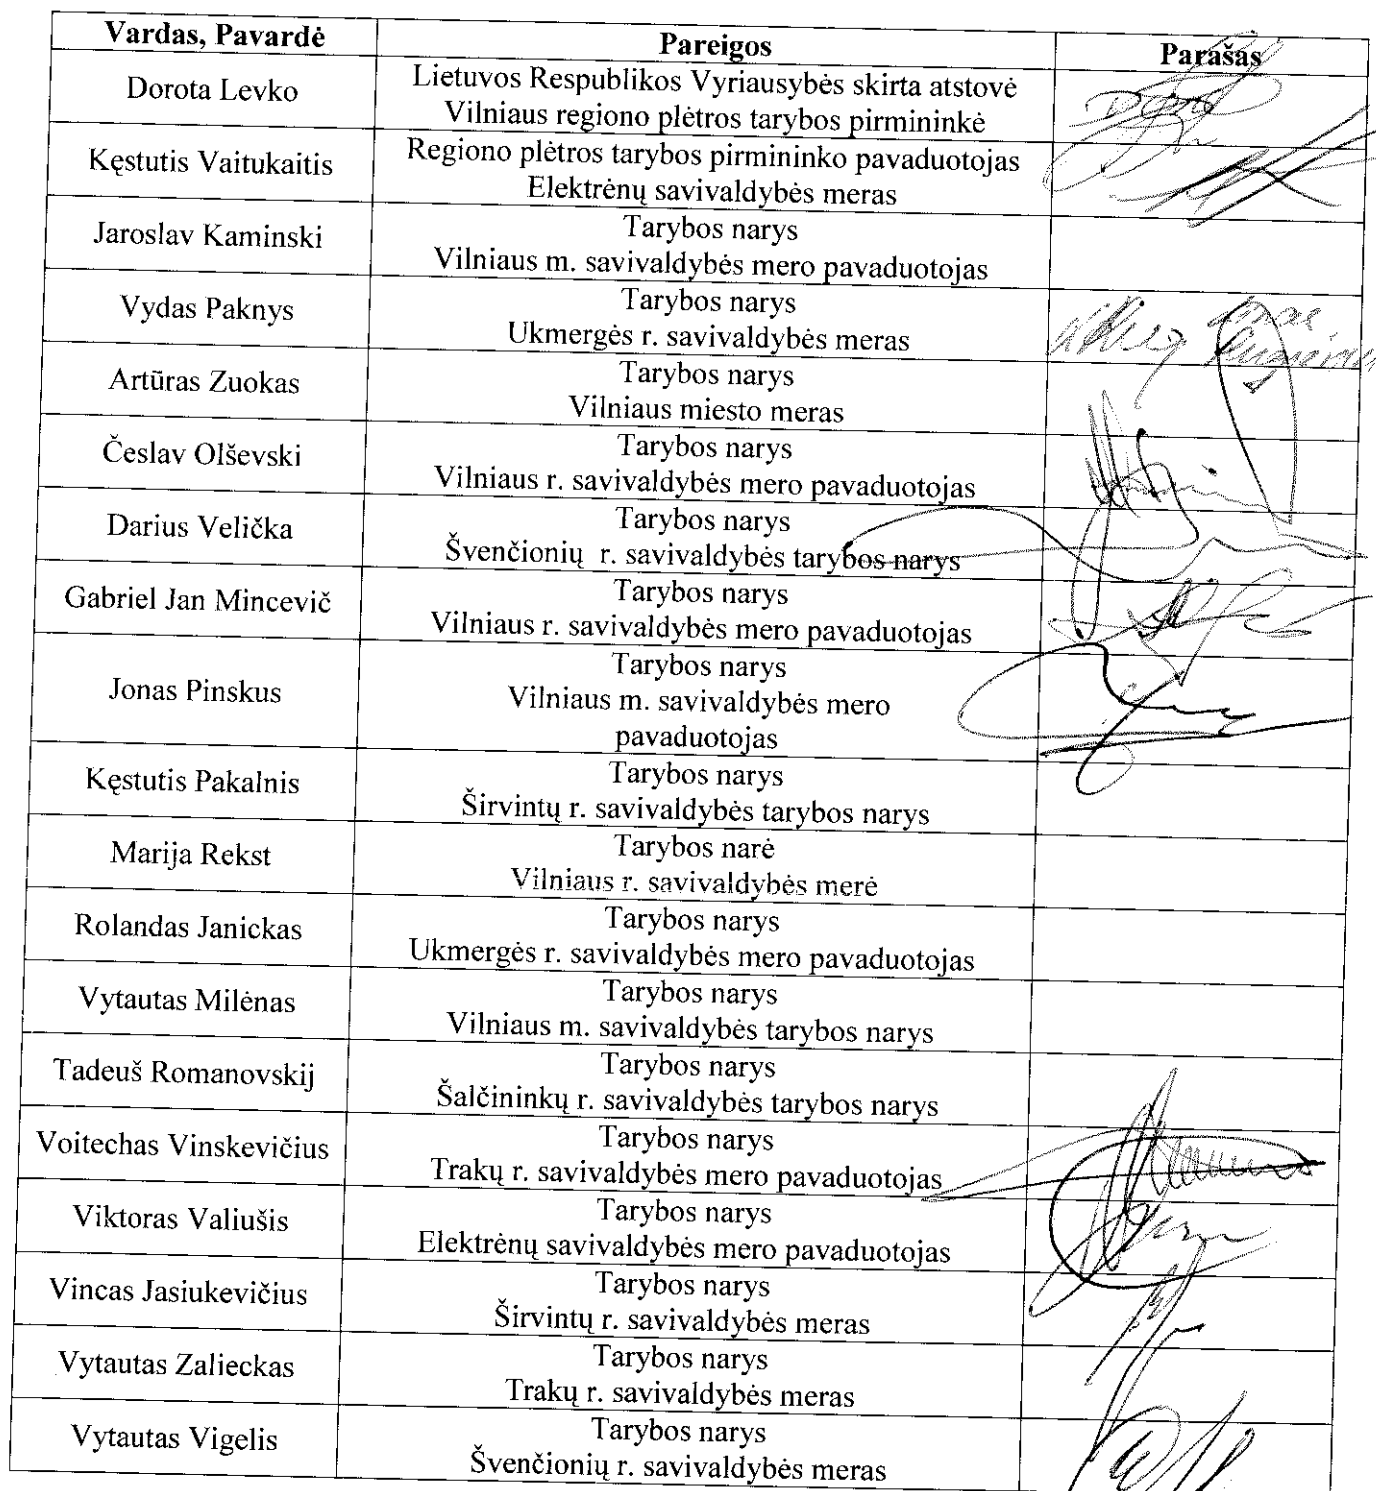 Vardas, Pavardė Pareigos Parašas
Dorota Levko Lietuvos Respublikos Vyriausybės skirta atstovė
Vilniaus regiono plėtros tarybos pirmininkė
Kęstutis Vaitukaitis Regiono plėtros tarybos pirmininko pavaduotojas
Elektrėnų savivaldybės meras
Jaroslav Kaminski Tarybos narys
Vilniaus m. savivaldybės mero pavaduotojas
Vydas Paknys Tarybos narys
Ukmergės r. savivaldybės meras
Artūras Zuokas Tarybos narys
Vilniaus miesto meras
Česlav Olševski Tarybos narys
Vilniaus r. savivaldybės mero pavaduotojas
Darius Velička Tarybos narys
Švenčionių r. savivaldybės tarybos narys
Gabriel Jan Mincevič Tarybos narys
Vilniaus r. savivaldybės mero pavaduotojas
Jonas Pinskus Tarybos narys
Vilniaus m. savivaldybės mero
pavaduotojas
Kęstutis Pakalnis Tarybos narys
Širvintų r. savivaldybės tarybos narys
Marija Rekst Tarybos narė
Vilniaus r. savivaldybės merė
Rolandas Janickas Tarybos narys
Ukmergės r. savivaldybės mero pavaduotojas
Vytautas Milėnas Tarybos narys
Vilniaus m. savivaldybės tarybos narys
Tadeuš Romanovskij Tarybos narys
Šalčininkų r. savivaldybės tarybos narys
Voitechas Vinskevičius Tarybos narys
Trakų r. savivaldybės mero pavaduotojas
Viktoras Valiušis Tarybos narys
Elektrėnų savivaldybės mero pavaduotojas
Vincas Jasiukevičius Tarybos narys
Širvintų r. savivaldybės meras
Vytautas Zalieckas Tarybos narys
Trakų r. savivaldybės meras
Vytautas Vigelis Tarybos narys
Švenčionių r. savivaldybės meras